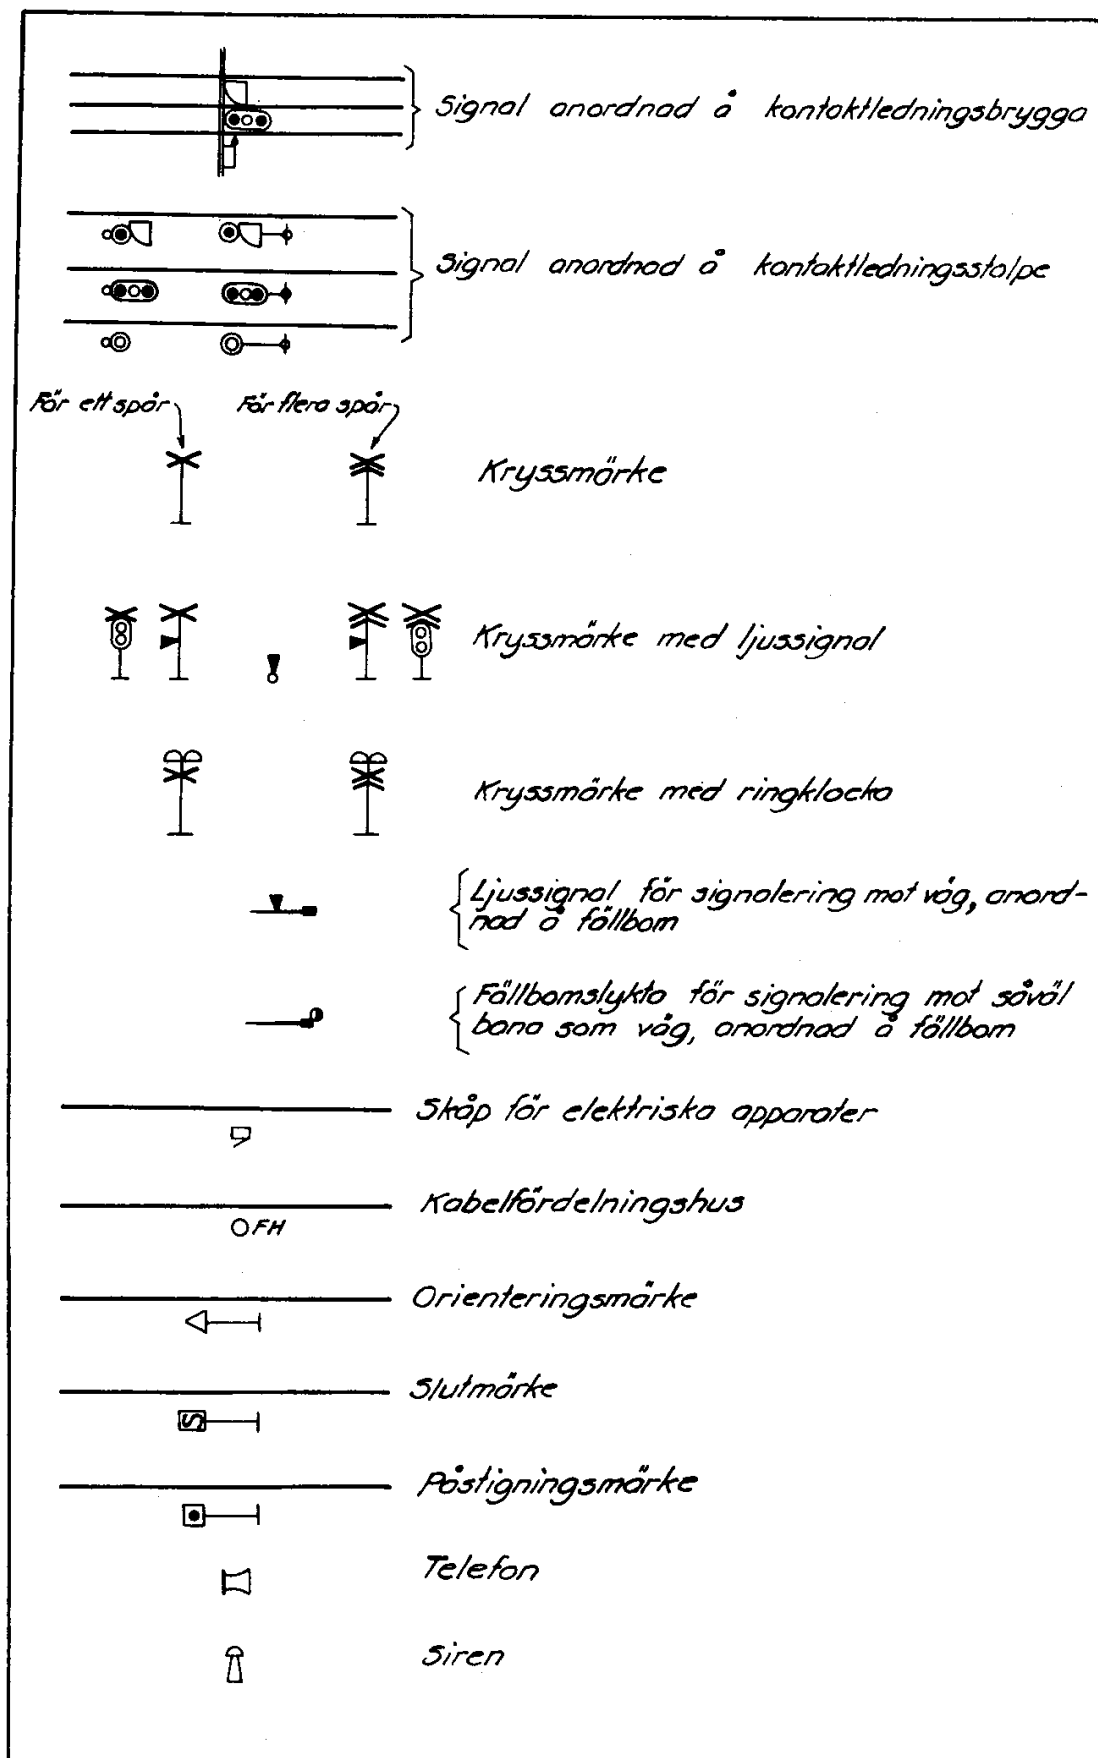 Signal anordnad å kontaktledningsbrygga
Signal anordnad å kontaktledningsstolpe
För ett spår
För flera spår
Kryssmärke
Kryssmärke med ljussignal
Kryssmärke med ringklocka
Ljussignal för signalering mot väg, anord-
nad å fällbom
Fällbomslykta för signalering mot såväl
bana som väg, anordnad å fällbom
Skåp för elektriska apparater
Kabelfördelningshus
FH
Orienteringsmärke
Slutmärke
S
Påstigningsmärke
Telefon
Siren